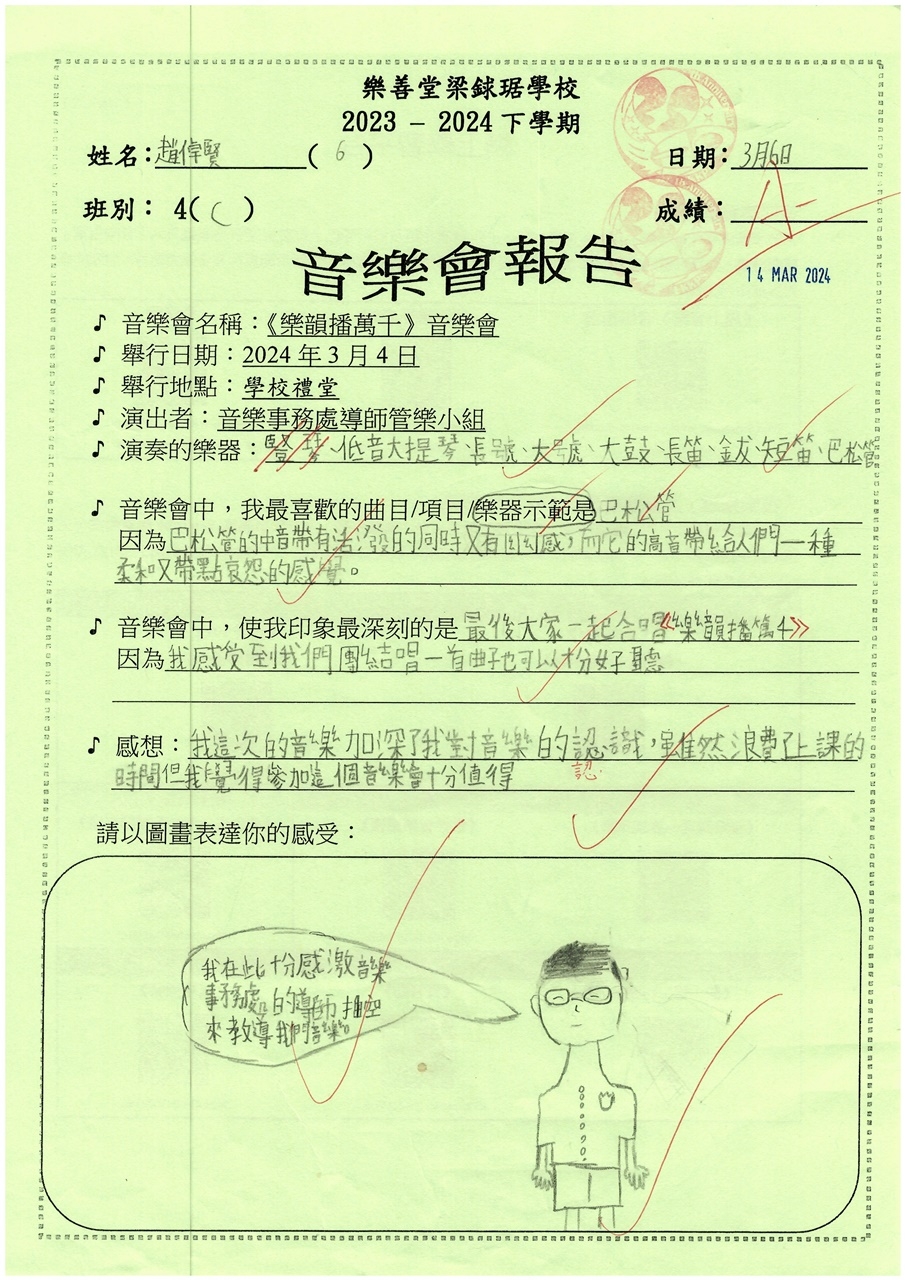 樂善堂梁銶琚學校
2023 - 2024 下學期
姓名:趙偉賢 ( 6 ) 日期: 3月6日
班別: 4( C ) 成績: A-
音樂會報告
14 MAR 2024
♪ 音樂會名稱:《樂韻播萬千》音樂會
♪ 舉行日期:2024 年 3 月 4 日
♪ 舉行地點:學校禮堂
♪ 演出者:音樂事務處導師管樂小組
♪ 演奏的樂器:豎琴、低音大提琴、長號、大號、大鼓、長笛、鈸、短笛、巴松管
♪ 音樂會中,我最喜歡的曲目/項目/樂器示範是巴松管
因為巴松管的中音帶有活潑的同時又有幽幻感,而它的高音帶給人們一種
柔和又帶點哀怨的感覺。
♪ 音樂會中,使我印象最深刻的是 最後大家一起合唱《樂韻播萬千》
因為我感受到我們團結唱一首曲子也可以十分好聽
♪ 感想:我這次的音樂加深了我對音樂的認識,雖然浪費了上課的
認
時間但我覺得參加這個音樂會十分值得
請以圖畫表達你的感受:
我在此十分感激音樂
事務處的導師抽空
來教導我們音樂。